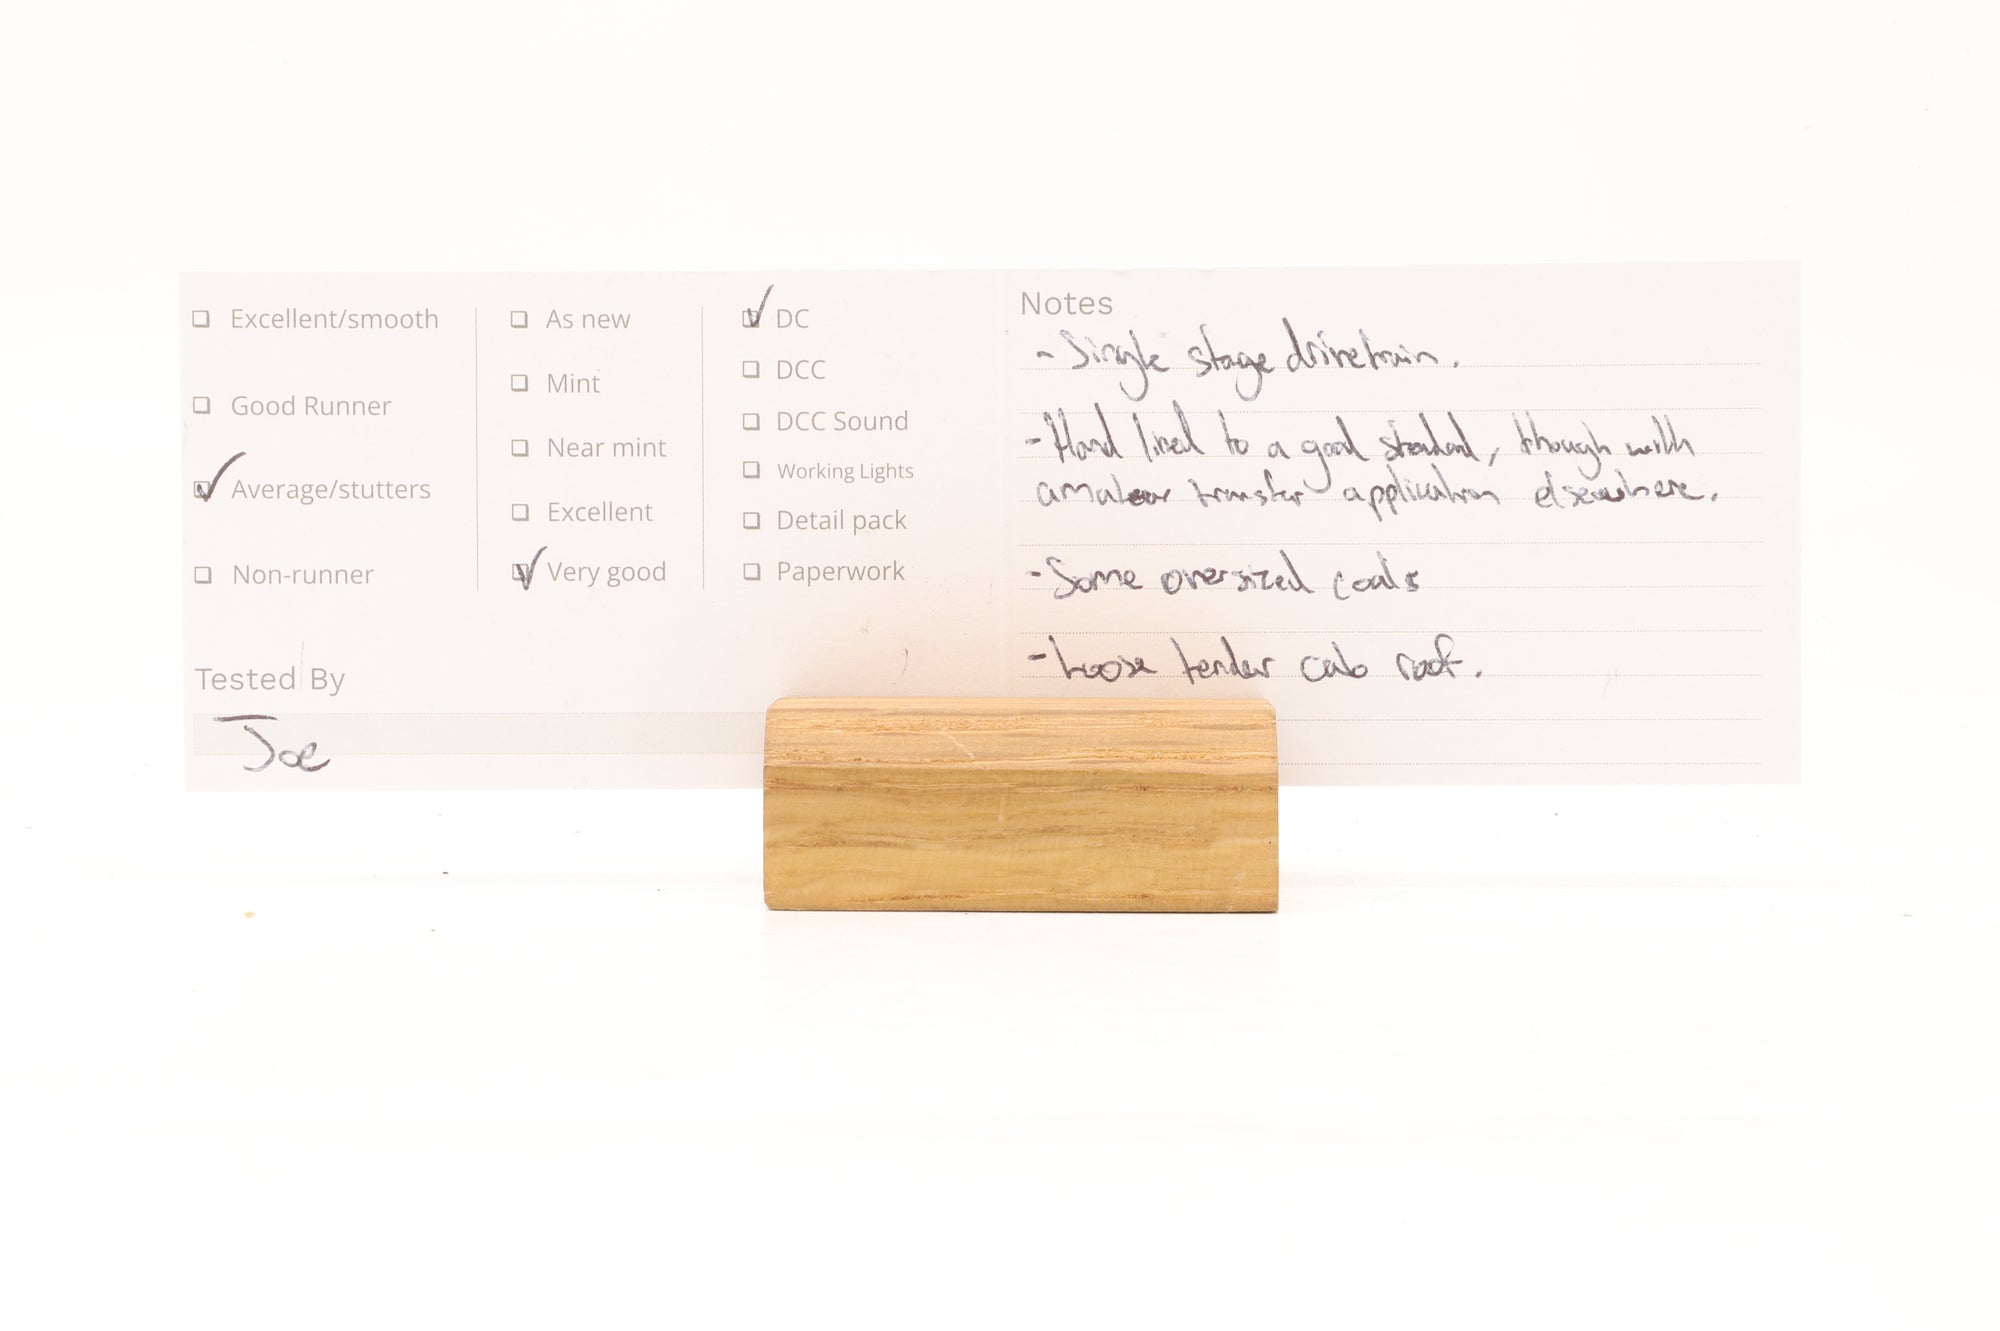 Excellent/smooth
Good Runner
Average/stutters
Non-runner
As new
Mint
Near mint
Excellent
Very good
DC
DCC
DCC Sound
Working Lights
Detail pack
Paperwork
Tested By
Joe
Notes
- Single stage drivetrain.
- Hand lined to a good standard, though with
amateur transfer application elsewhere.
- Some oversized coals
- Loose tender cab roof.